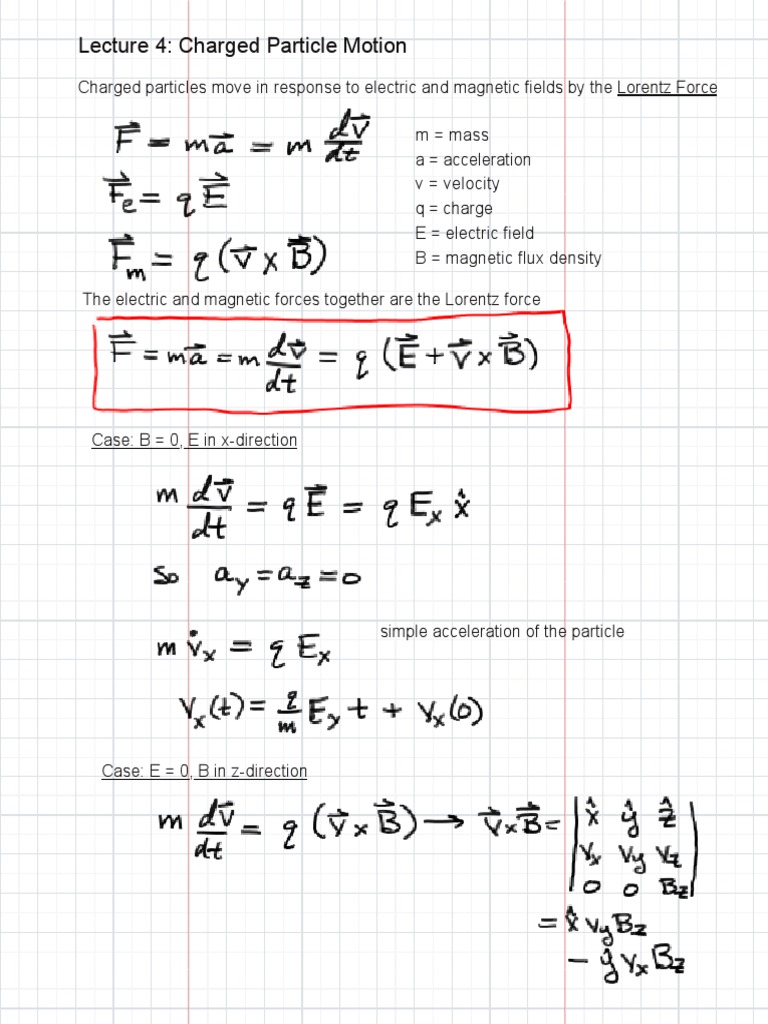 Lecture 4: Charged Particle Motion
Charged particles move in response to electric and magnetic fields by the Lorentz Force
F⃗ = ma⃗ = m dv⃗/dt
m = mass
a = acceleration
F⃗e = qE⃗
v = velocity
q = charge
E = electric field
F⃗m = q(v⃗ × B⃗)
B = magnetic flux density
The electric and magnetic forces together are the Lorentz force
F⃗ = ma⃗ = m dv⃗/dt = q(E⃗ + v⃗ × B⃗)
Case: B = 0, E in x-direction
m dv⃗/dt = qE⃗ = qEₓ x̂
so a_y = a_z = 0
simple acceleration of the particle
m v̇ₓ = qEₓ
vₓ(t) = q/m Eₓ t + vₓ(0)
Case: E = 0, B in z-direction
m dv⃗/dt = q(v⃗ × B⃗) → v⃗ × B⃗ = | x̂ ŷ ẑ |
| vₓ v_y v_z |
| 0 0 B_z |
= x̂ v_y B_z
− ŷ vₓ B_z